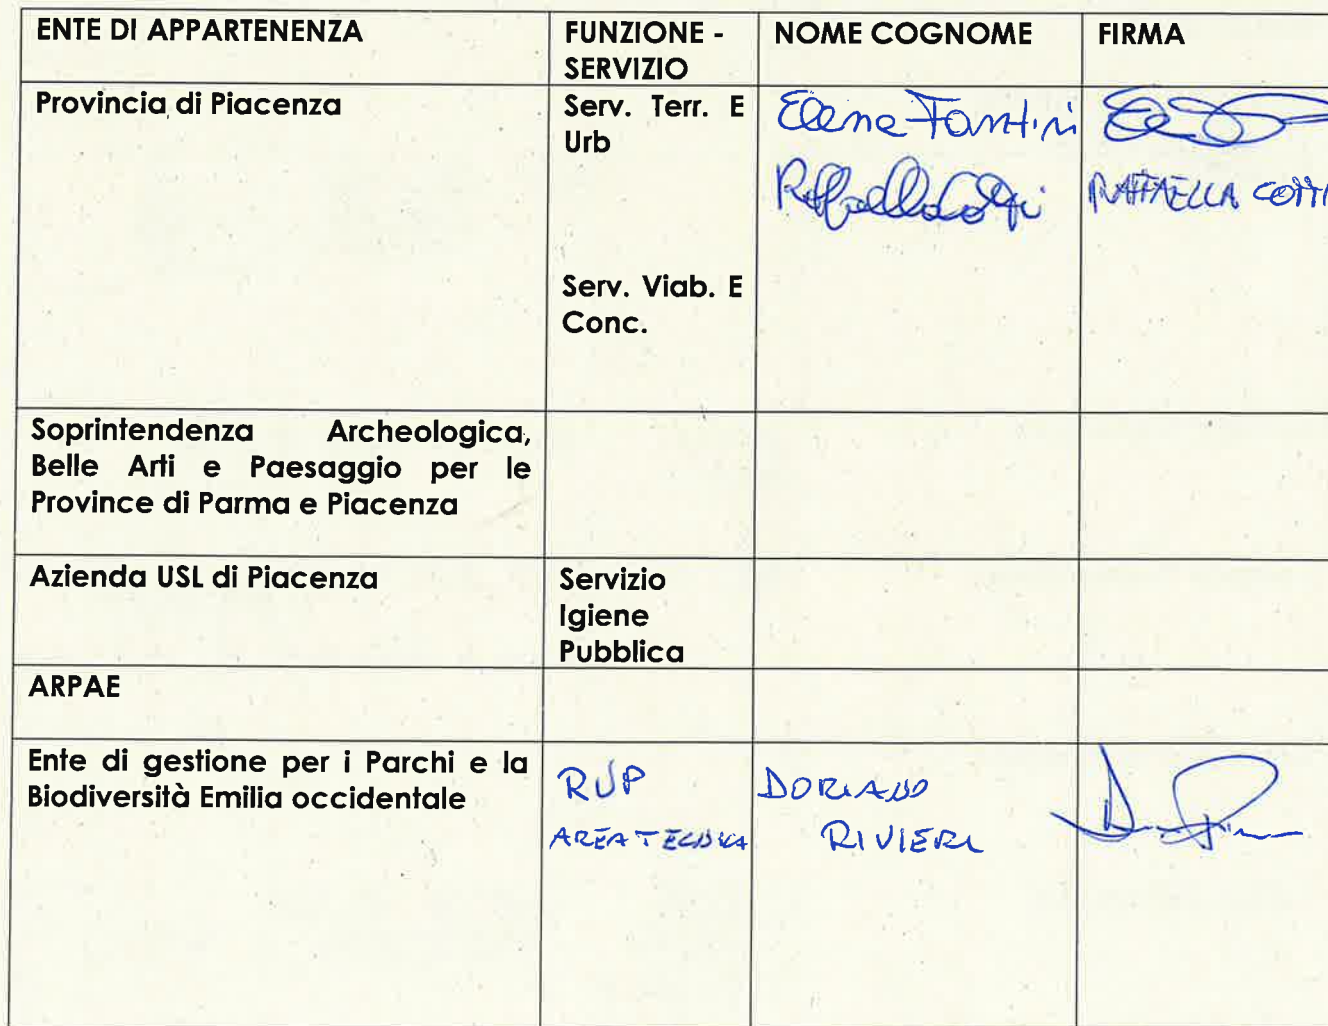 ENTE DI APPARTENENZA
FUNZIONE -
SERVIZIO
NOME COGNOME
FIRMA
Provincia di Piacenza
Serv. Terr. E
Urb
Elena Fantini
Raffaella Cotti
RAFFAELLA COTTI
Serv. Viab. E
Conc.
Soprintendenza Archeologica,
Belle Arti e Paesaggio per le
Province di Parma e Piacenza
Azienda USL di Piacenza
Servizio
Igiene
Pubblica
ARPAE
Ente di gestione per i Parchi e la
Biodiversità Emilia occidentale
RUP
AREA TECNICA
DORIANO
RIVIERI